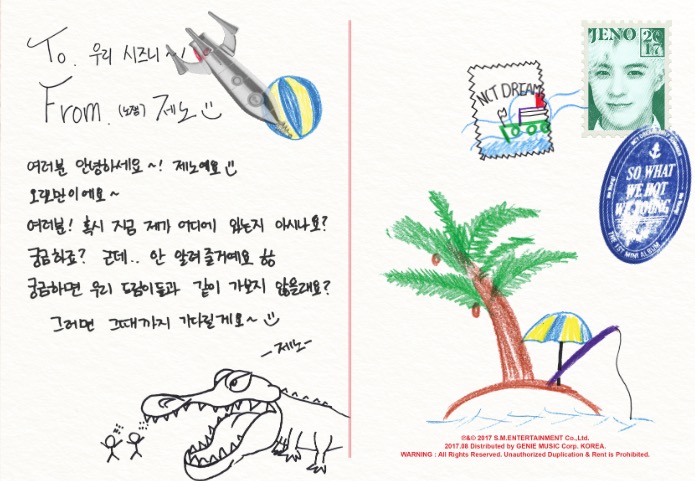 To. 우리 시즈니~
From. (노잼) 제노
여러분 안녕하세요~! 제노예요
오랜만이에요~
여러분! 혹시 지금 제가 어디에 있는지 아시나요?
궁금하죠? 근데.. 안 알려줄거예요 ㅎㅎ
궁금하면 우리 드림이들과 같이 가보지 않을래요?
그러면 그때까지 기다릴게요~
-제노-
NCT DREAM
JENO
2017
SO WHAT
WE HOT
WE YOUNG
THE 1ST MINI ALBUM
℗&© 2017 S.M.ENTERTAINMENT Co.,Ltd.
2017.08 Distributed by GENIE MUSIC Corp. KOREA.
WARNING : All Rights Reserved. Unauthorized Duplication & Rent is Prohibited.